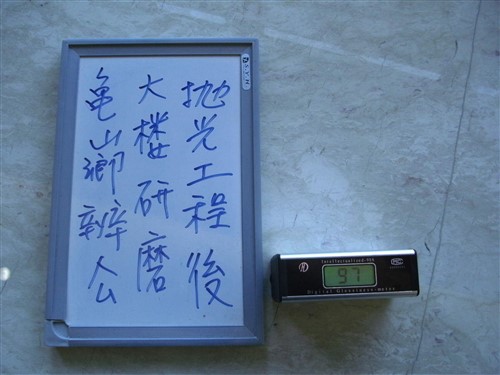 龜山鄉辦公
大樓研磨
拋光工程後
S.Y.H.
97
Digital Glossiness-meter